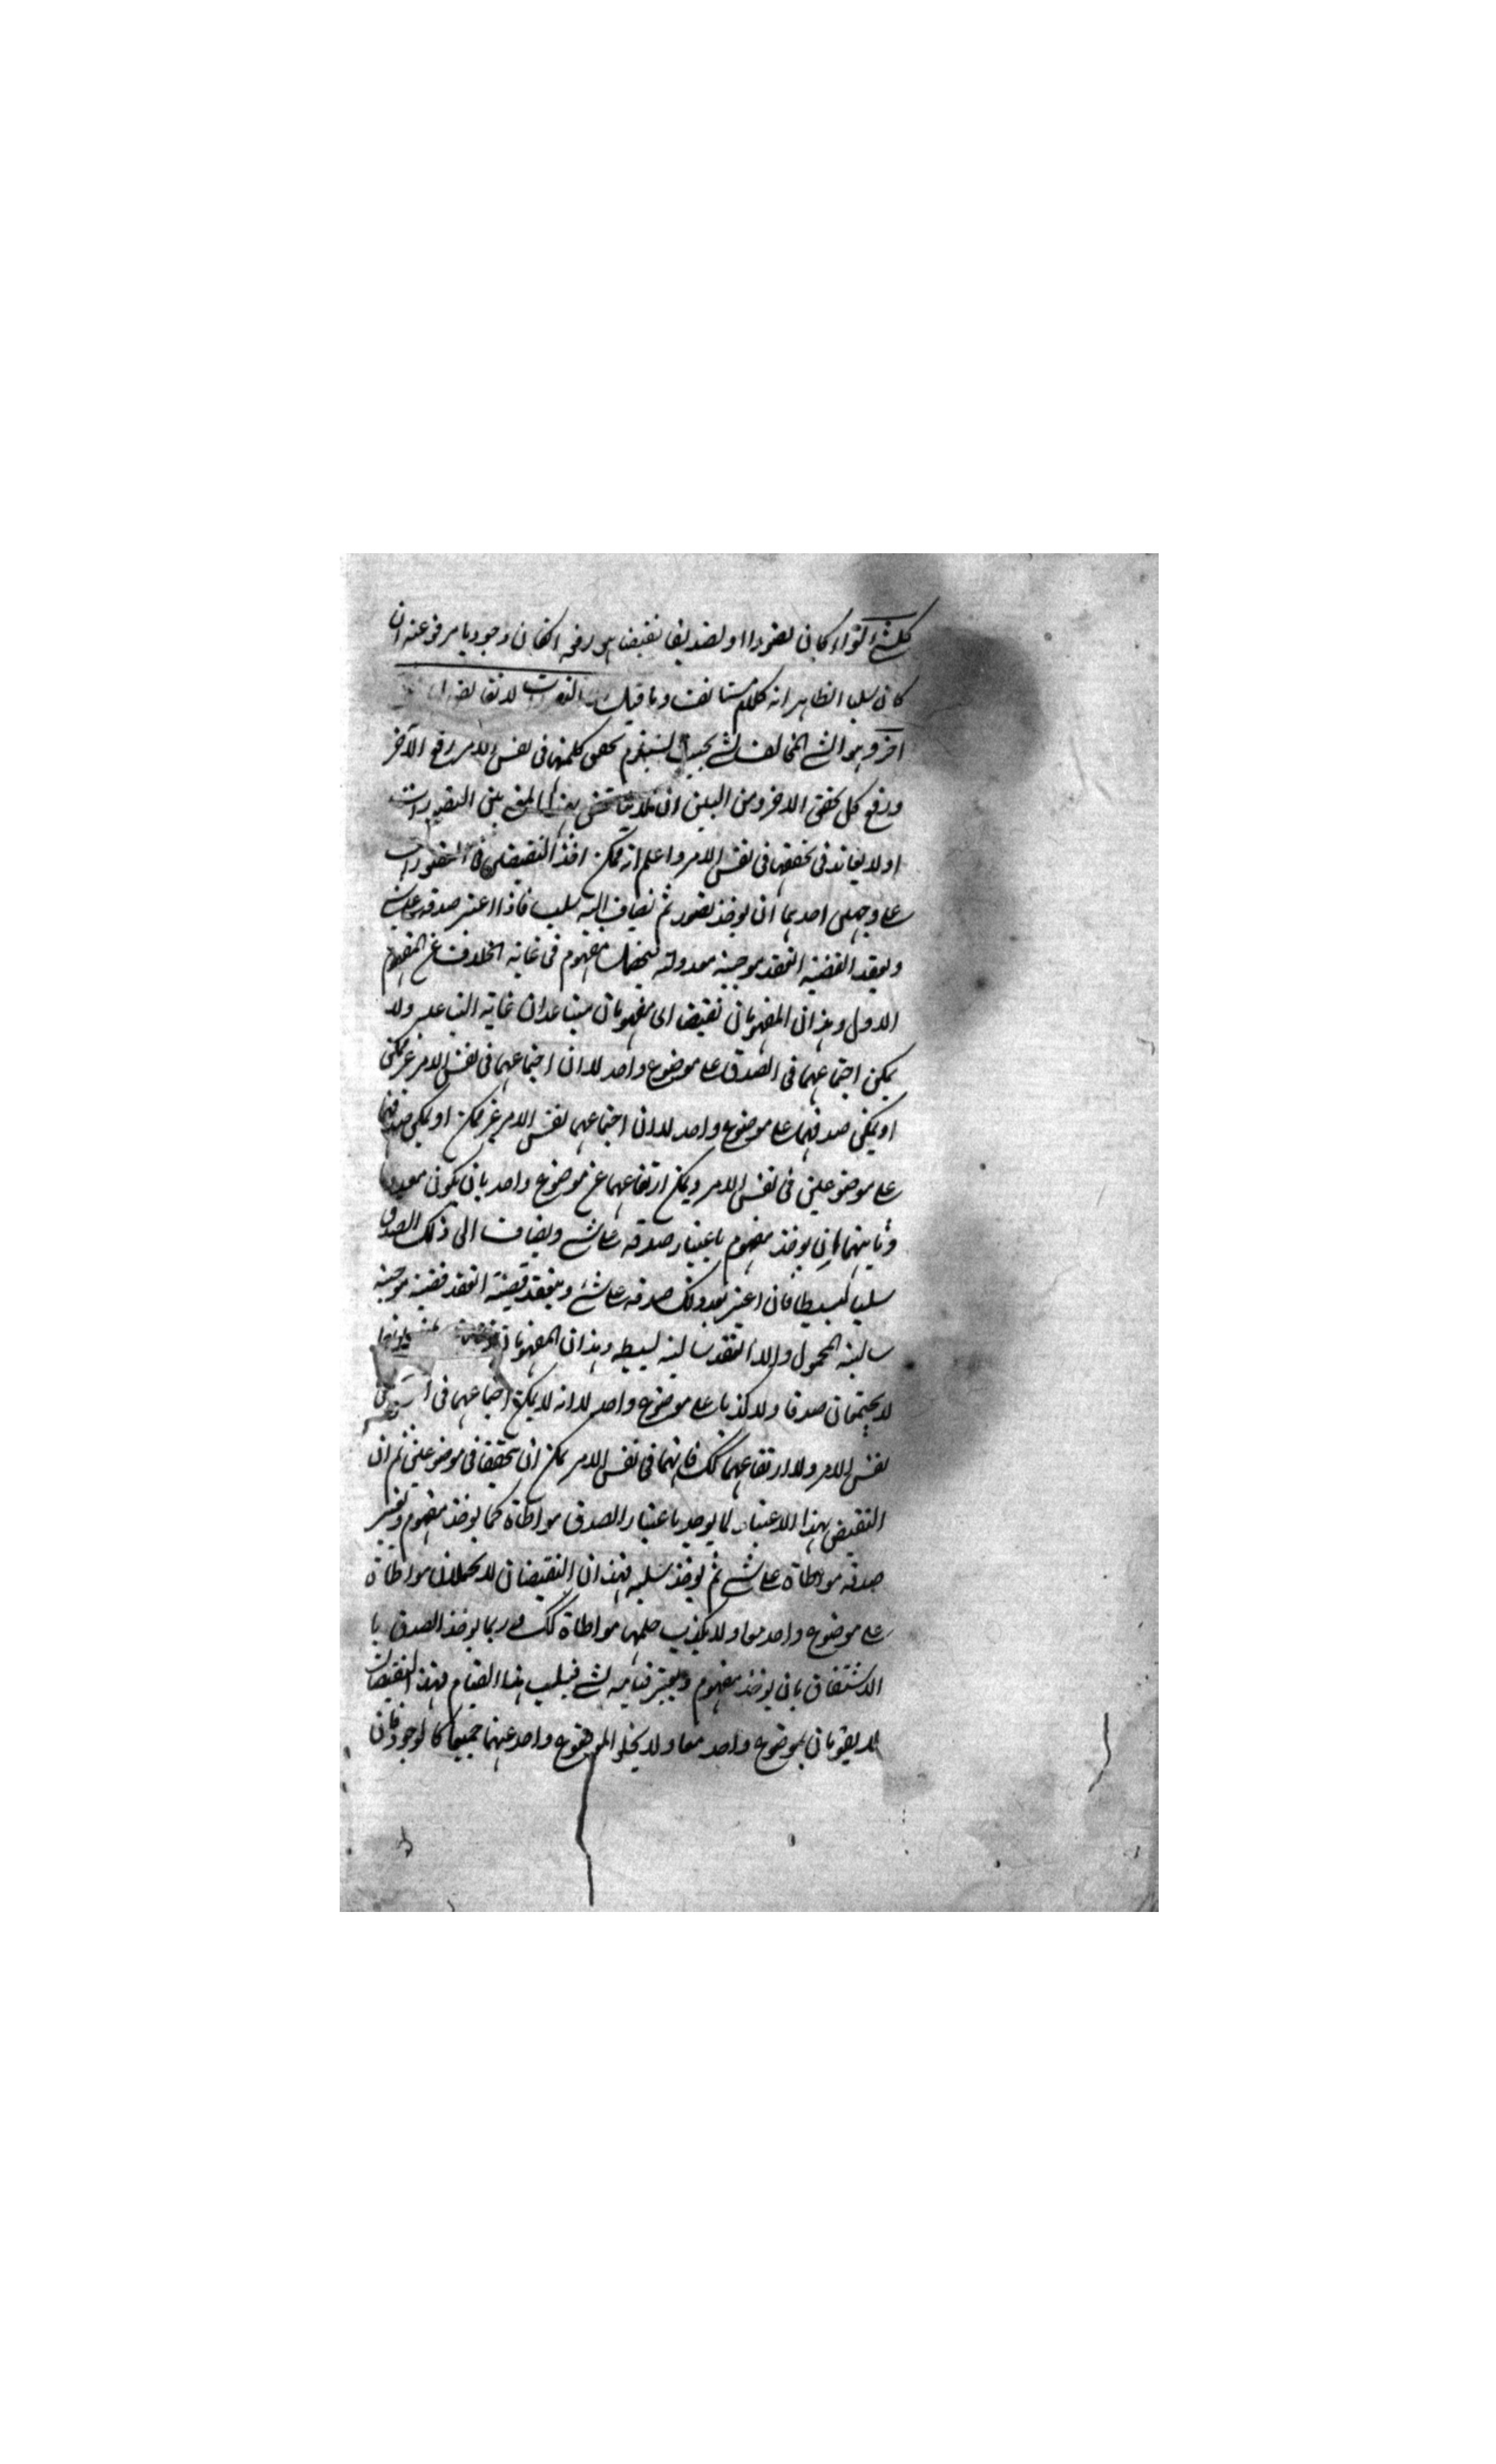 كل شئ سواء كان تصورا او تصديقا نقيضه هو رفعه ان كان وجوديا مرفوعه ان
كان سلبا الظاهر انه كلام مستانف وما قيل التصورات لا نقائض لها
آخر وهو ان الشئ المخالف لشئ بحيث يستلزم تحقق كل منهما فى نفس الامر رفع الآخر
ورفع كل تحقق الآخر ومن البين ان لا تناقض بهذا المعنى بين التصورات
اذ لا تعاند فى تحققها فى نفس الامر واعلم انه يمكن اخذ النقيضين فى التصورات
على وجهين احدهما ان يوخذ تصور ثم يضاف اليه سلب فاذا اعتبر صدقه على شئ
ويعقد القضية انعقد موجبة معدولة فيحصل مفهوم فى غاية الخلاف عن المفهوم
الاول وهذان المفهومان نقيضان اى مفهومان متباعدان غاية التباعد ولا
يمكن اجتماعهما فى الصدق على موضوع واحد لا ان اجتماعهما فى نفس الامر غير ممكن
او يمكن صدقهما على موضوع واحد لا ان اجتماعهما نفس الامر غير ممكن او يمكن صدقهما
على موضوعين فى نفس الامر ويمكن ارتفاعهما عن موضوع واحد بان يكون معدوما
وثانيهما ان يوخذ مفهوم باعتبار صدقه على شئ ويضاف الى ذلك الصدق
سلبا بسيطا فان اعتبر بعد ذلك صدقه على شئ وينعقد قضية انعقد قضية موجبة
سالبة المحمول والا انعقد سالبة بسيطه وهذان المفهومان
لا يجتمعان صدقا ولا كذبا على موضوع واحد لا انه لا يمكن اجتماعهما فى
نفس الامر ولا ارتفاعهما كك فانهما فى نفس الامر يمكن ان يتحققا فى موضوعين ثم ان
النقيض بهذا الاعتبار لما يوجد باعتبار الصدق مواطاة كما يوخذ مفهوم ويعتبر
صدقه مواطاة على شئ ثم يوخذ سلبه فهذان النقيضان لا يحملان مواطاة
على موضوع واحد معا ولا يكذب حملهما مواطاة كك و ربما يوخذ الصدق با
الاشتقاق بان يوخذ مفهوم ويعتبر قيامه لشئ فيسلب هذا القيام فهذا النقيضان
لا يقومان بموضوع واحد معا ولا يخلو الموضوع واحد عنهما جميعا كالوجود فان